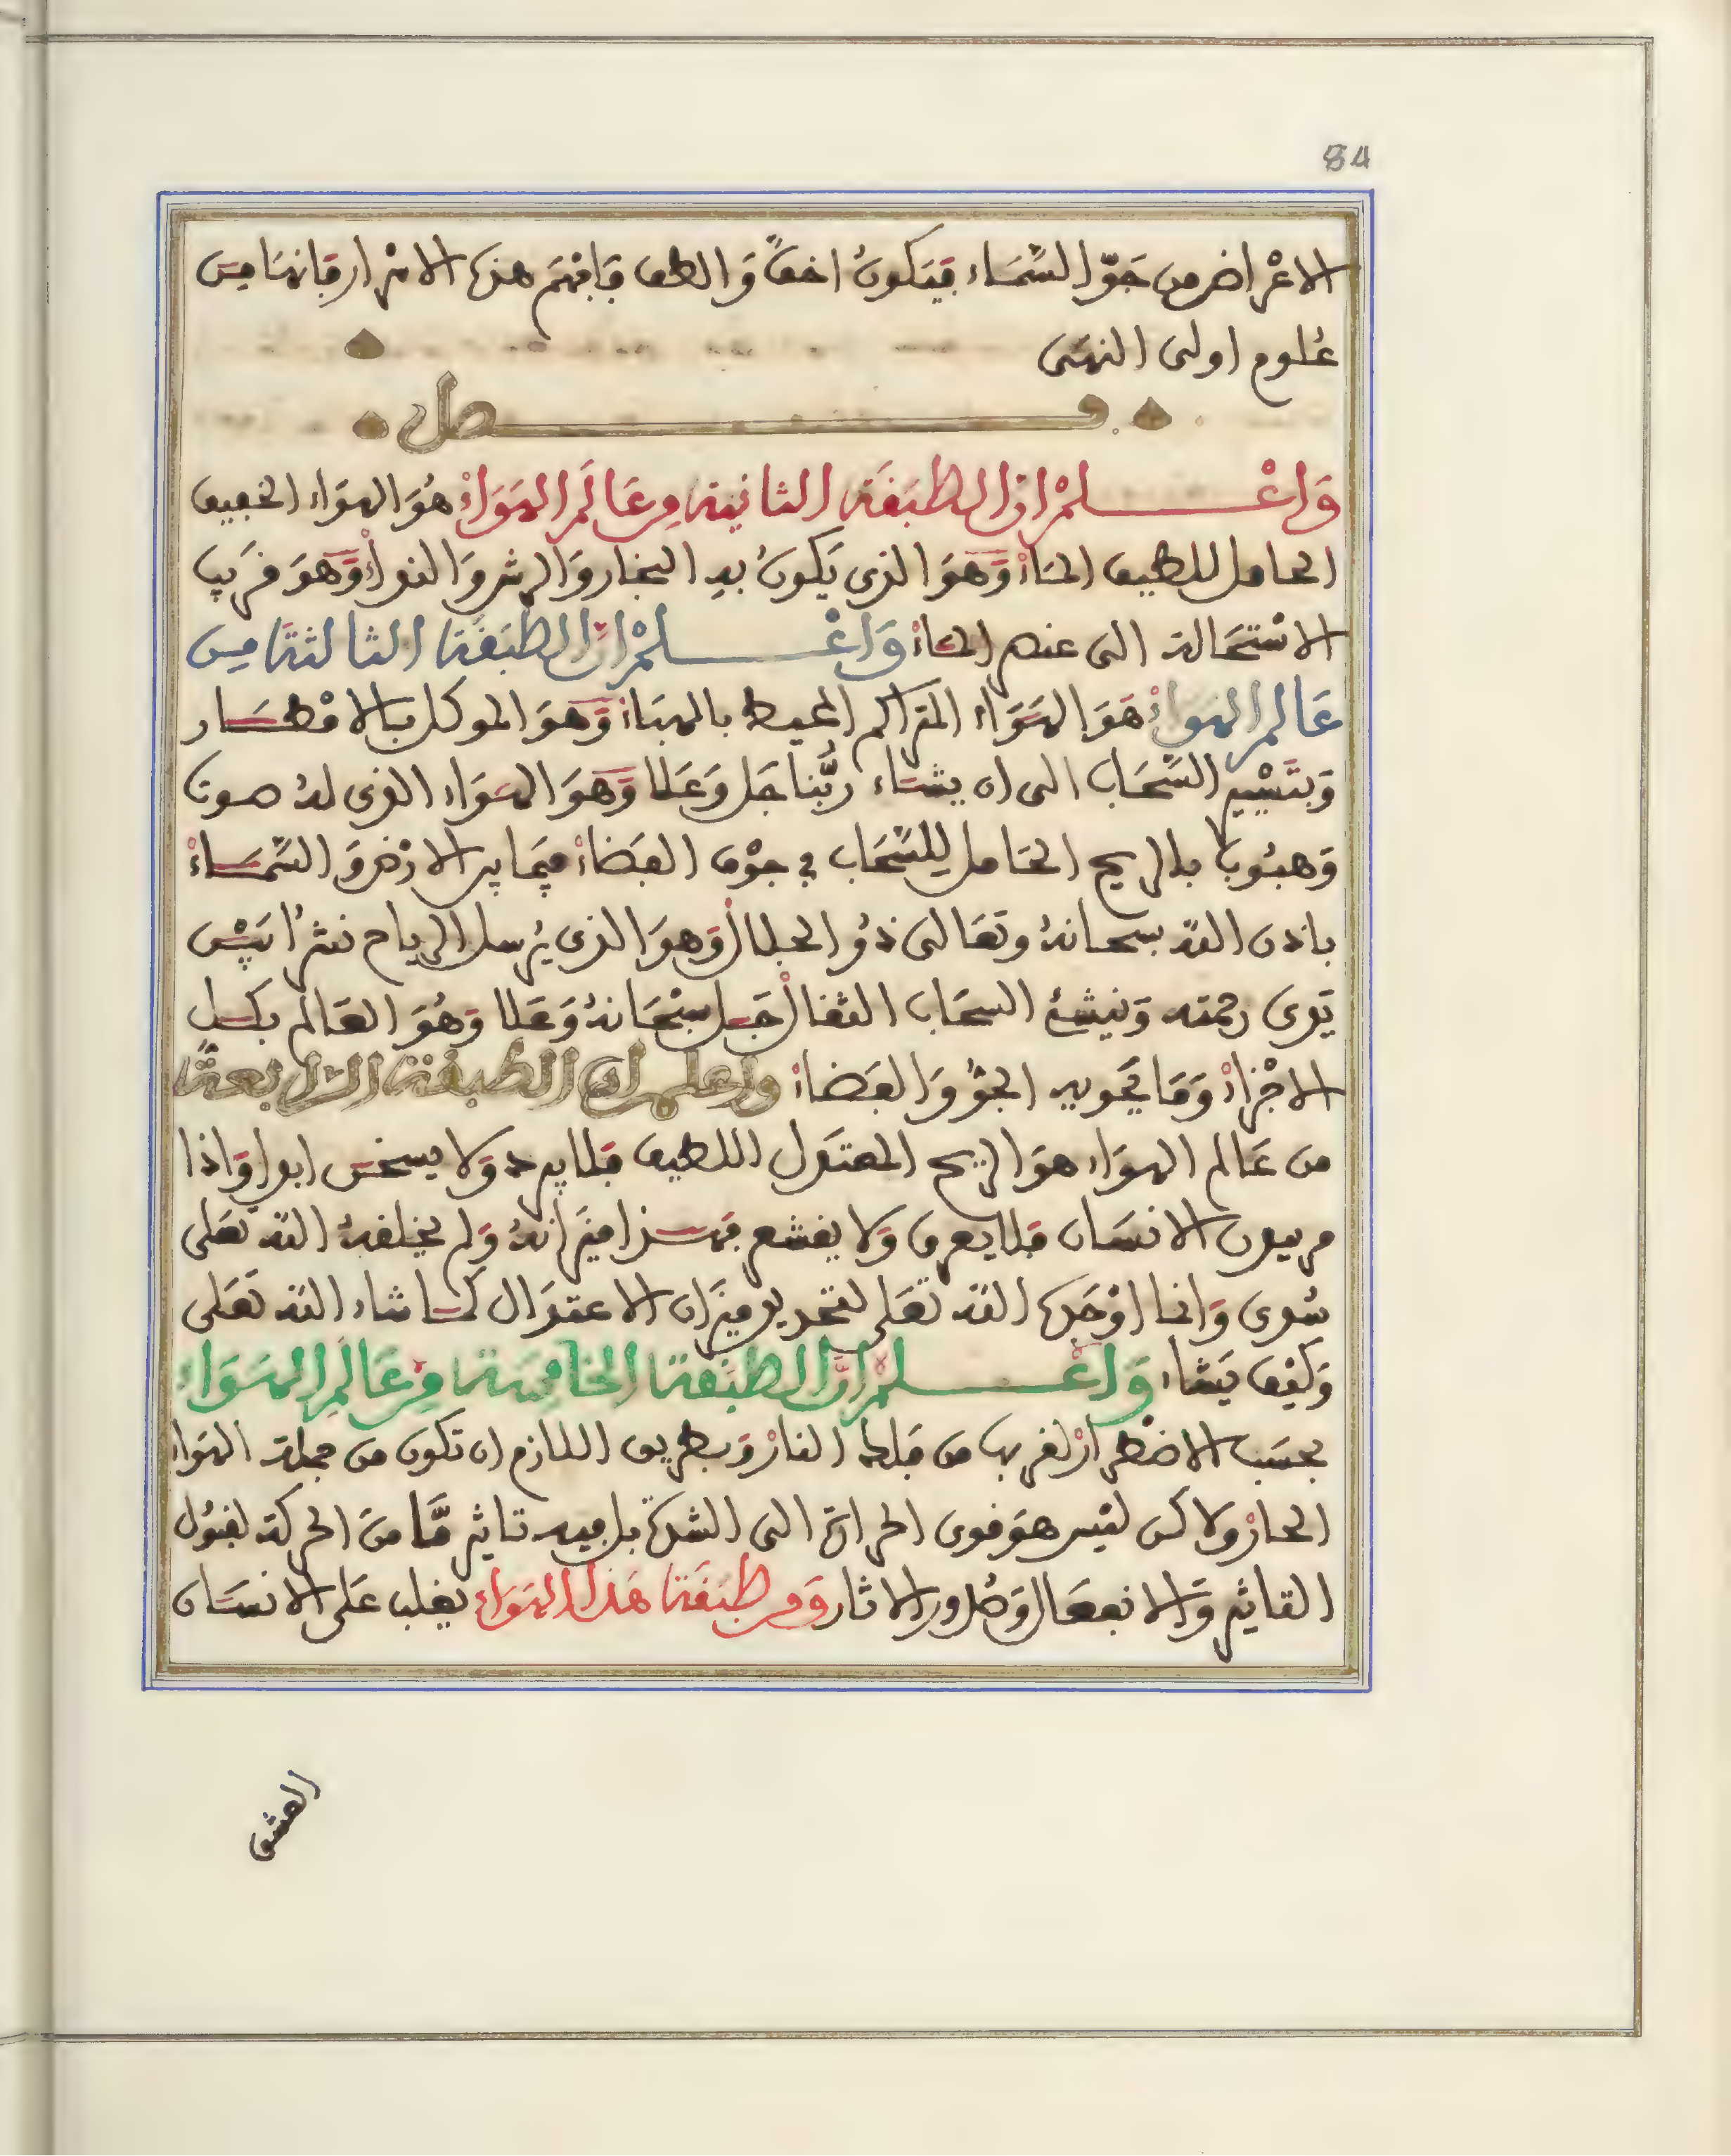 84
الاعْراض من جَوّ السَّمَاء فيَكونُ اخفّ وَالطف فَافهَم هذه الاسْرار فَانهَا مِن
عُلوم اولى النهَى
فـصل
وَاعْلمْ ان الطبَقَة الثانية من عَالَم الهَوَاءْ هُوَ الهوَاء الخفيف
الحامل للطيف المَاءْ وَهوَ الذى يَكونُ بهِ البخار وَالرش وَالندا وَهوَ قريب
الاسْتحَالة الى عنصر المَاءْ وَاعْلمْ انّ الطبَقَة الثالثة مِن
عَالم الهواءْ هَوَ الهَوَاء المتراكم المحيط بالهبَاءْ وَهوَ الموكل بالامْطَار
وَبتَسْيير السَّحَاب الى ان يشَاء ربُّنا جَل وَعَلا وَهوَ الهوَاء الذى لهُ صوت
وَهبُوب بالريح الحَامل لِلسَّحَاب في جوْف الفَضاءْ فيمَا بين الارْض وَالسَّمَاءْ
باذن الله سبحانهُ وتعَالى ذُو الجلال وَهوَ الذى يُرسل الرياح نشراً بَيْن
يَدى رحمته وَينشئُ السحَاب الثقال جَل سبْحَانهُ وَعَلا وَهُوَ العَالم بكل
الاجْزاءْ وَمَا يحَويه الجوّ وَالفَضاءْ واعلم ان الطبقة الرابعة
من عَالم الهوَاء هوَ الريح المعتَدل اللطيف فلا يبرد وَلا يسخن ابدا وَاذا
مر بيدن الانسَان فلا يعرق وَلا يقشعر فهذا ميزانهُ وَلم يخلقهُ الله تعَلى
سُدى وَانما اوْجَده الله تعَلى لتحديد ميزان الاعتدَال كما شاء الله تعَلى
وَكيْف يَشاء وَاعْلمْ انّ الطبَقة الخامِسَة من عَالم الهَوَاء
بحسَب الاضْطرارْ لقربها من فلك النارْ وَبطريق اللازم ان تكون من جملة الهَواء
الحارْ وَلاكن ليْس هوَ قوى الحرارة الى الشدة بل فيه تاثير مَّا منَ الحركة لقبُول
التاثير وَالانفعَال وَصُدور الاثار وَفى طبَقَة هَذا الهَوَاء يغلب عَلى الانسَان
العشق